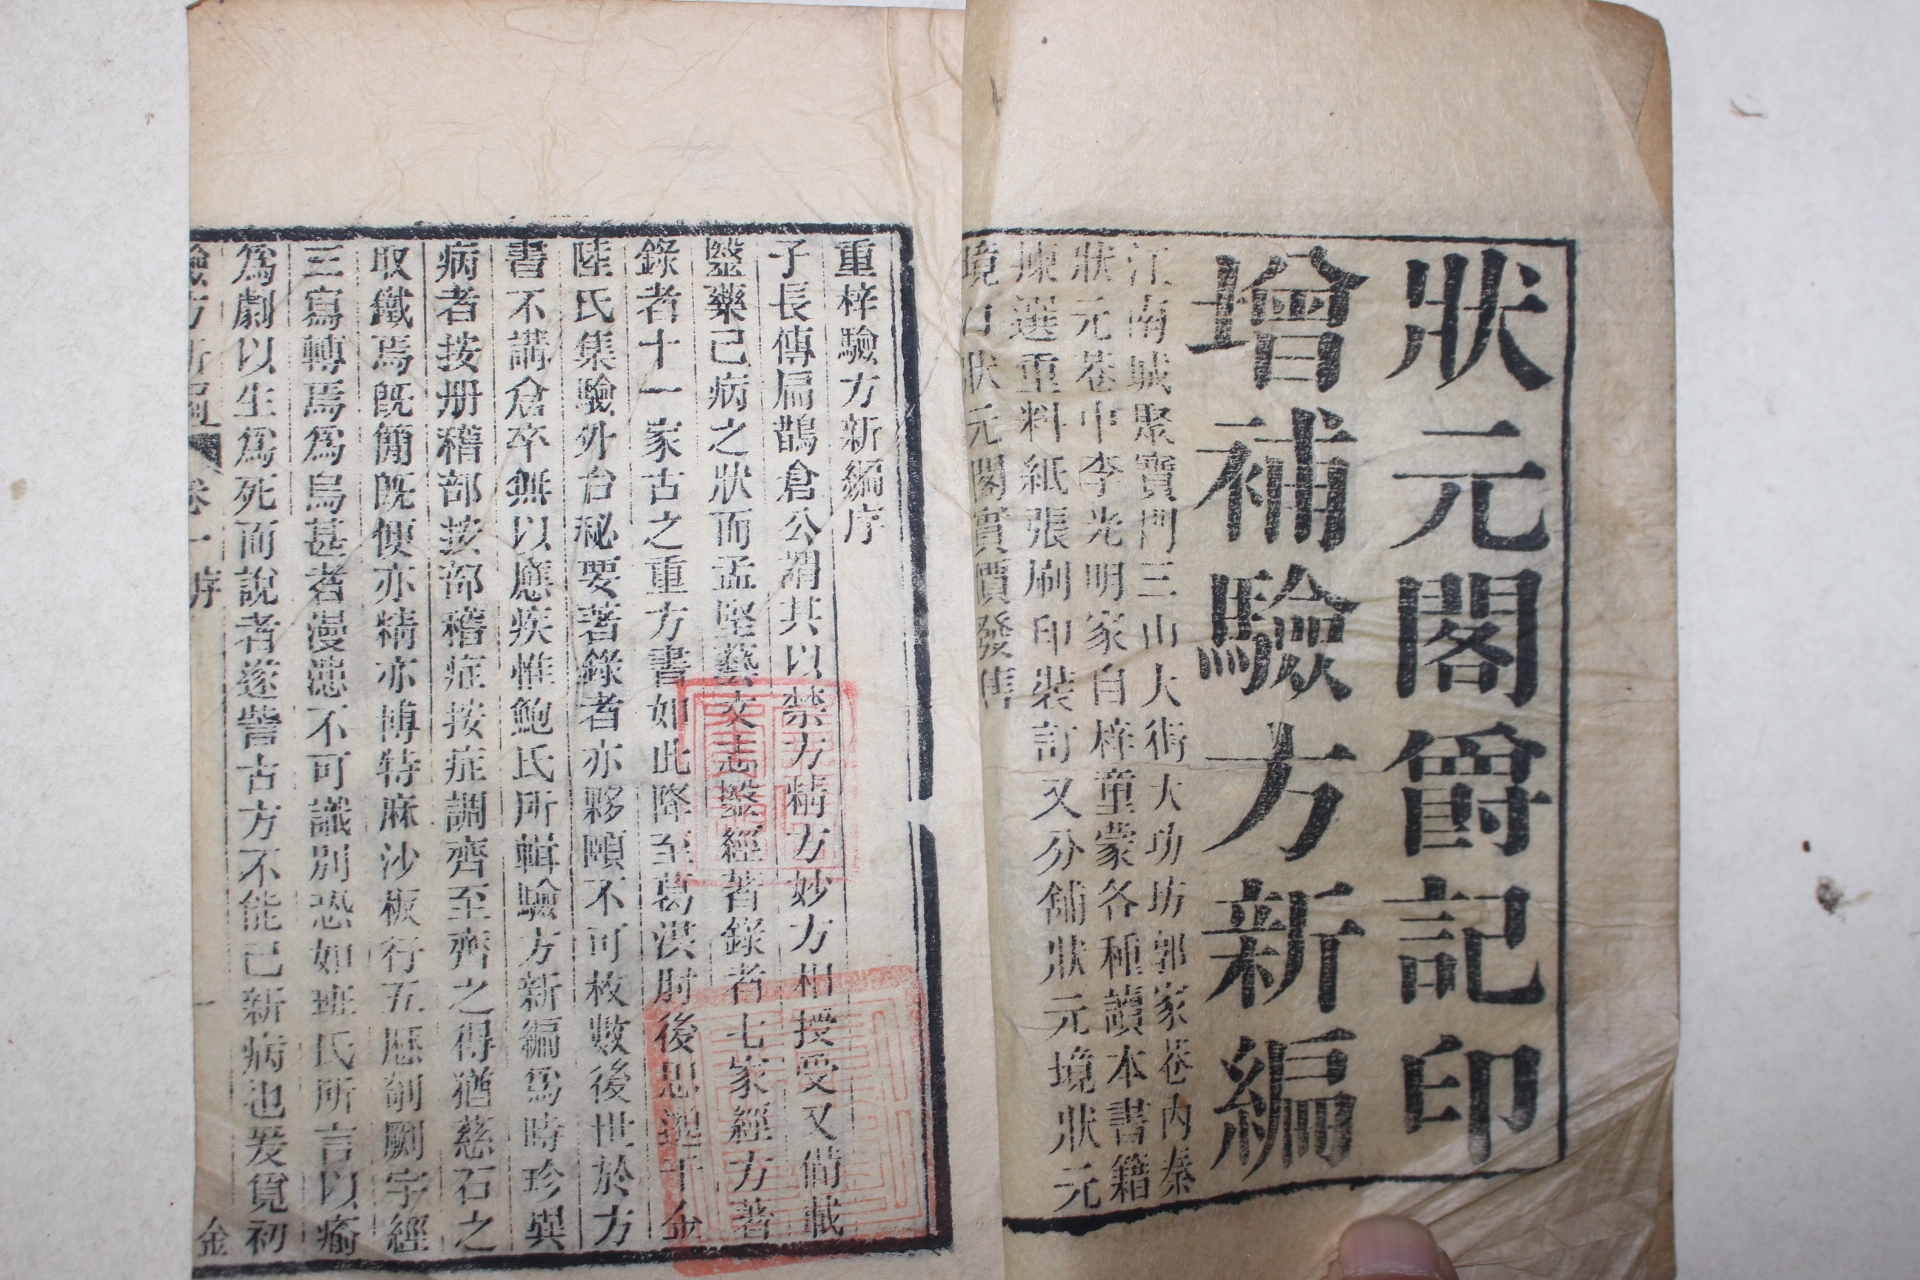 狀元閣爵記印
增補驗方新編
江南城聚寶門三山大街大功坊郭家巷內秦
狀元巷中李光明家自梓童蒙各種讀本書籍
揀選重料紙張刷印裝訂又分鋪狀元境狀元
境口狀元閣實價發售
重梓驗方新編序
子長傳扁鵲倉公謂其以禁方精方妙方相授受又備載
毉藥已病之狀而孟堅藝文志毉經著錄者七家經方著
錄者十一家古之重方書如此降至葛洪肘後思邈千金
陸氏集驗外台秘要著錄者亦夥頤不可枚數後世於方
書不講倉卒無以應疾惟鮑氏所輯驗方新編爲時珍異
病者按册稽部按部稽症按症調齊至齊之得猶慈石之
取鐵焉既簡既便亦精亦博特麻沙板行五厯剞劂字經
三寫轉焉爲烏甚者漫漶不可識別恐如班氏所言以瘉
爲劇以生爲死而說者遂訾古方不能已新病也爰覓初
驗方新編 卷一序 一 金